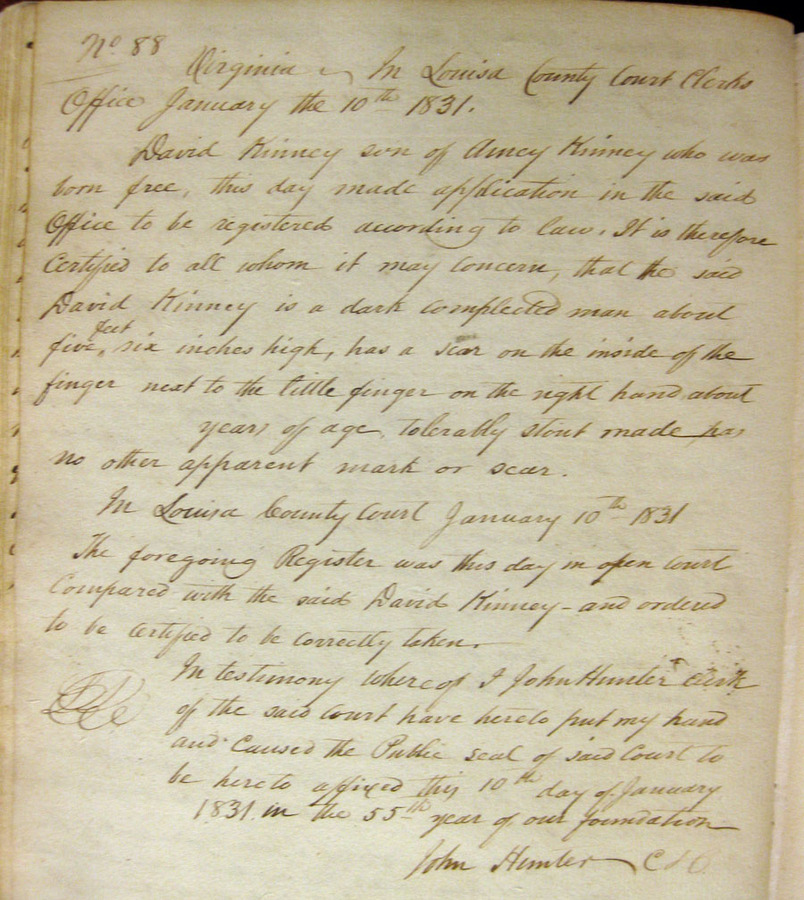 No 88
Virginia In Louisa County Court Clerks
Office January the 10th 1831.
David Kinney son of Amey Kinney who was
born free, this day made application in the said
Office to be registered according to law. It is therefore
Certified to all whom it may concern, that the said
David Kinney is a dark complected man about
five feet six inches high, has a scar on the inside of the
finger next to the little finger on the right hand about
years of age, tolerably stout made has
no other apparent mark or scar.
In Louisa County Court January 10th 1831
The foregoing Register was this day in open Court
Compared with the said David Kinney - and ordered
to be certified to be correctly taken.
In testimony whereof I John Hunter Clerk
of the said Court have hereto put my hand
and Caused the Public seal of said Court to
be hereto affixed this 10th day of January
1831 in the 55th year of our foundation
John Hunter